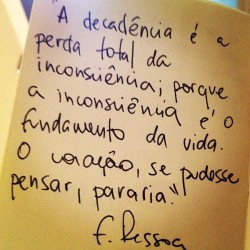 "A decadência é a
perda total da
inconsciência; porque
a inconsciência é o
fundamento da vida.
O coração, se pudesse
pensar, pararia."
F. Pessoa